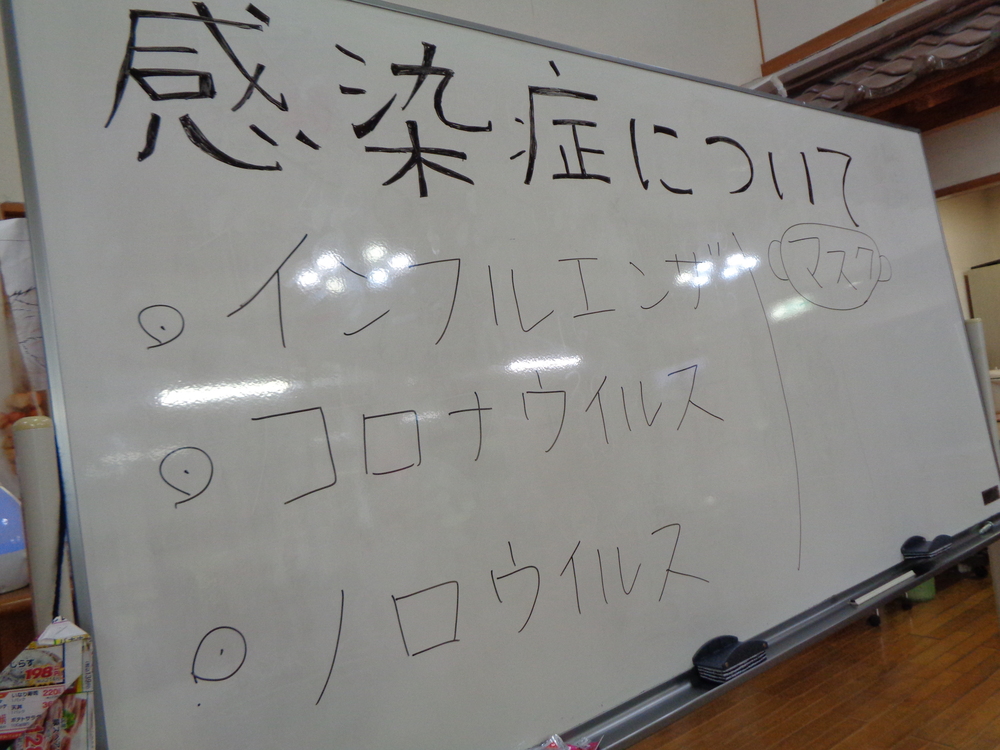 感染症について
インフルエンザ
マスク
コロナウイルス
ノロウイルス
しらす
198
220